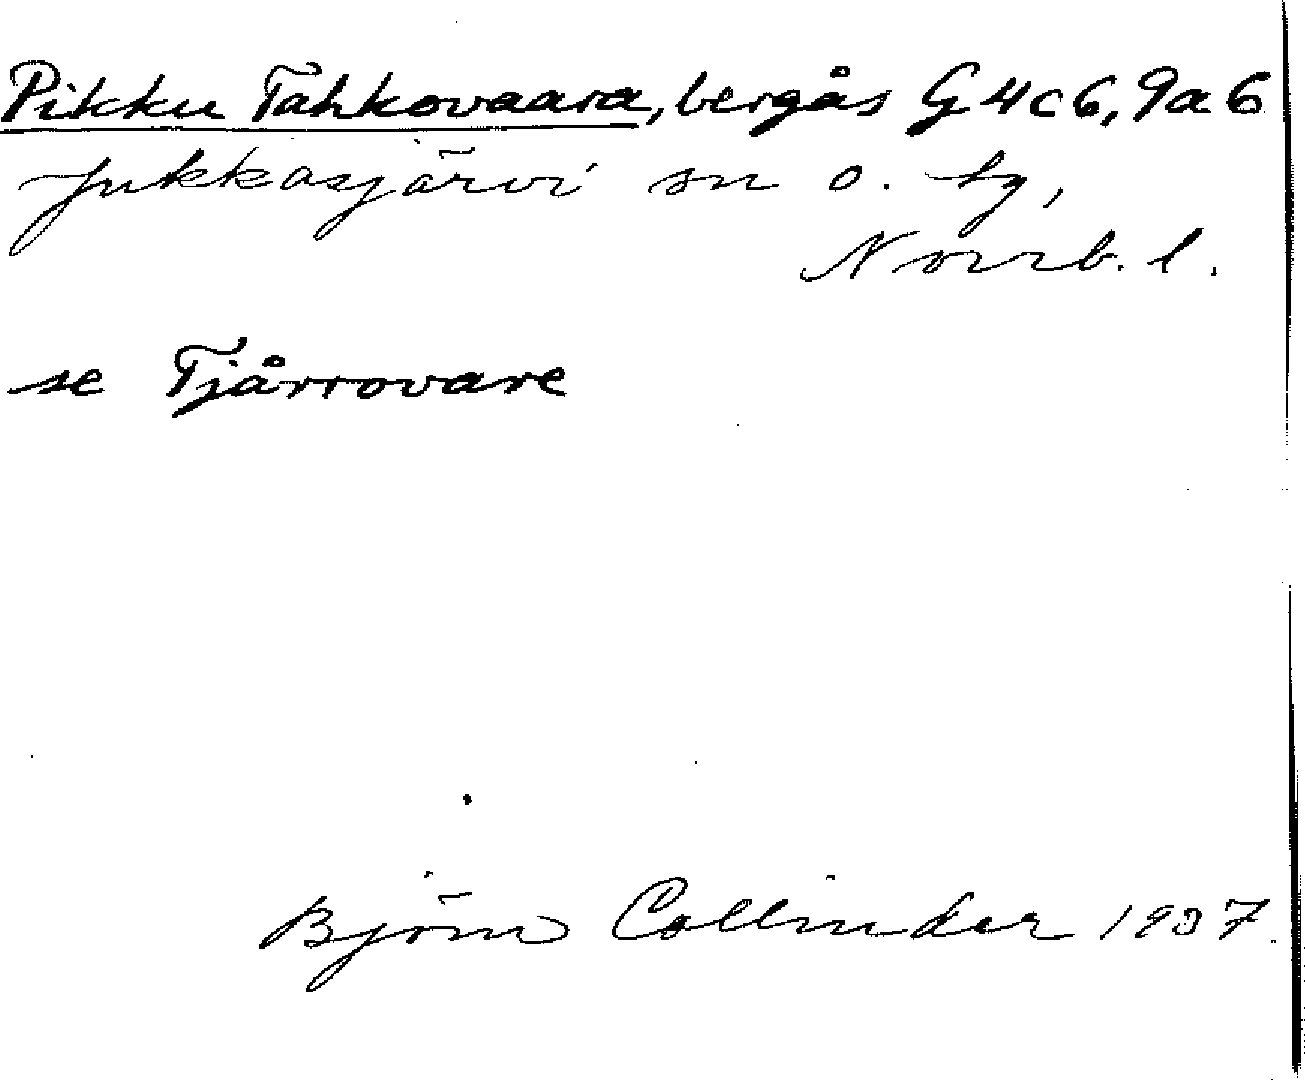 Pikku Tahkovaara, bergås G 4c6, 9a6
Jukkasjärvi sn o. tg,
Norrb. l.
se Tjårrovare
Björn Collinder 1937